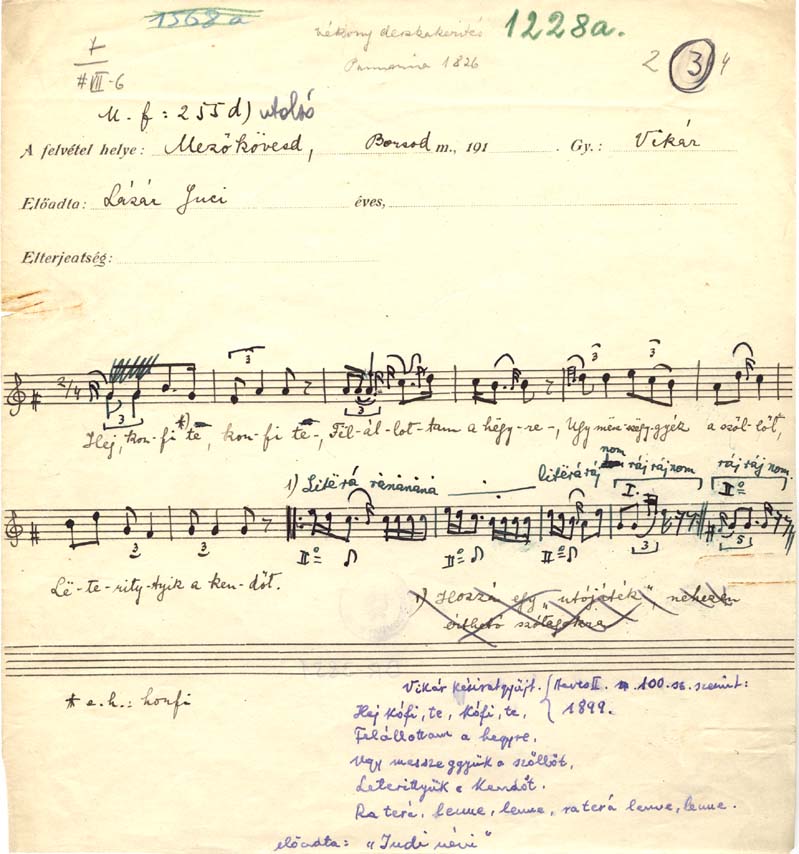 1568a
vékony deszkakerítés 1228a.
Pannonia 1826
2 3 4
+
# VII-6
M. f: 255d) utolsó
A felvétel helye: Mezőkövesd, Borsod m., 191 . Gy.: Vikár
Előadta: Lázár Juci éves,
Elterjeatség:
2/4
3 3 3 3 3
Hej, kon-fi *) te, kon-fi te-, Fël-ál-lot-tam a hëgy-re-, Ugy mën a szöl-lőt,
nom
1) Litërá ránánáná literáráj ráj ráj nom ráj ráj nom
I. II=o
3 3 3 5
IIo IIo IIo
Lë-te-rity-tyik a ken-dőt.
1) Hozzá egy „utójáték", nehezen
érthető szótagokra
* e.h.: honfi
Vikár kéziratgyűjt. II. 100. sz. szerint:
Hej kófi, te, kófi, te, 1899.
Felállottam a hegyre,
Ugy messze ggyük a szőllőt,
Leterittyük a Kendőt.
Ra terá, lenne, lenne, ra terá lenne, lenne.
előadta: „Judi néni"